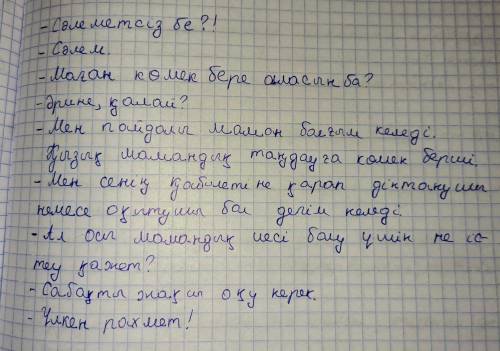 - Сәлеметсіз бе?!
- Сәлем.
- Маған көмек бере аласын ба?
- Әрине, қалай?
- Мен пайдалы маман болғым келеді.
Қызық мамандық таңдауға көмек берші.
- Мен сенің қабілетіне қарап дінтанушы
немесе оқытушы бол дегім келеді.
- Ал осы мамандық иесі болу үшін не іс-
теу қажет?
- Сабақты жақсы оқу керек.
- Үлкен рахмет!